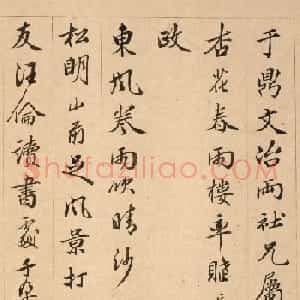 于鼎文冶兩社兄屬
杏花春雨樓率賦
政
東風幾兩頃晴沙
松明山前足風景打
友汪倫讀書處
Shufaziliao.com